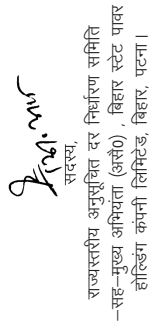 सदस्य,
राज्यस्तरीय अनुसूचित दर निर्धारण समिति
–सह–मुख्य अभियंता (असै0) , बिहार स्टेट पावर
होल्डिंग कंपनी लिमिटेड, बिहार, पटना।